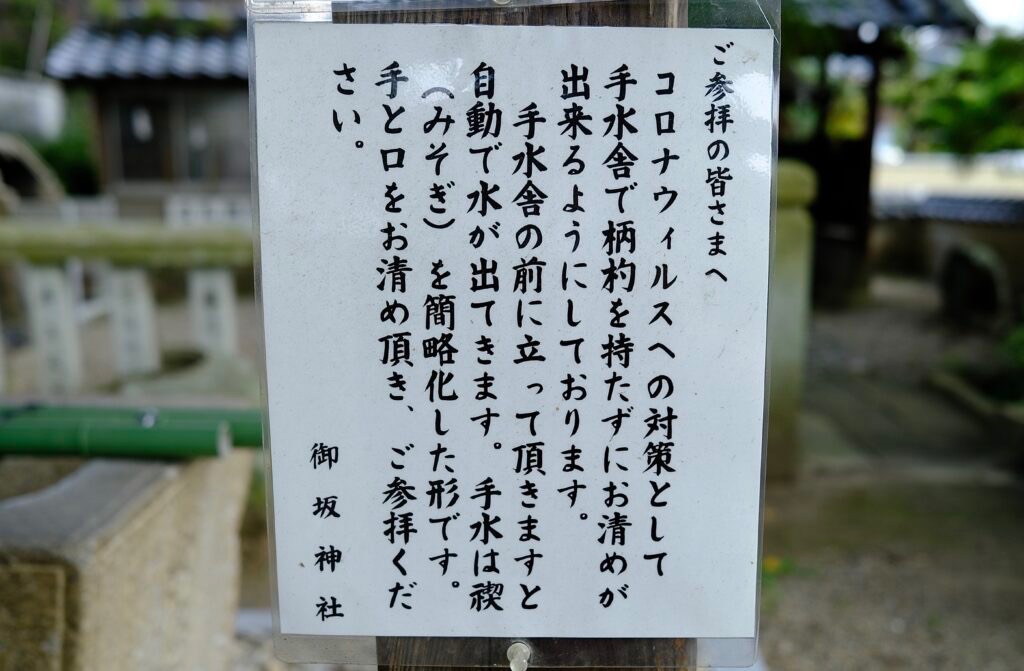 ご参拝の皆さまへ
コロナウィルスへの対策として
手水舎で柄杓を持たずにお清めが
出来るようにしております。
手水舎の前に立って頂きますと
自動で水が出てきます。手水は禊
（みそぎ）を簡略化した形です。
手と口をお清め頂き、ご参拝くだ
さい。
御坂神社